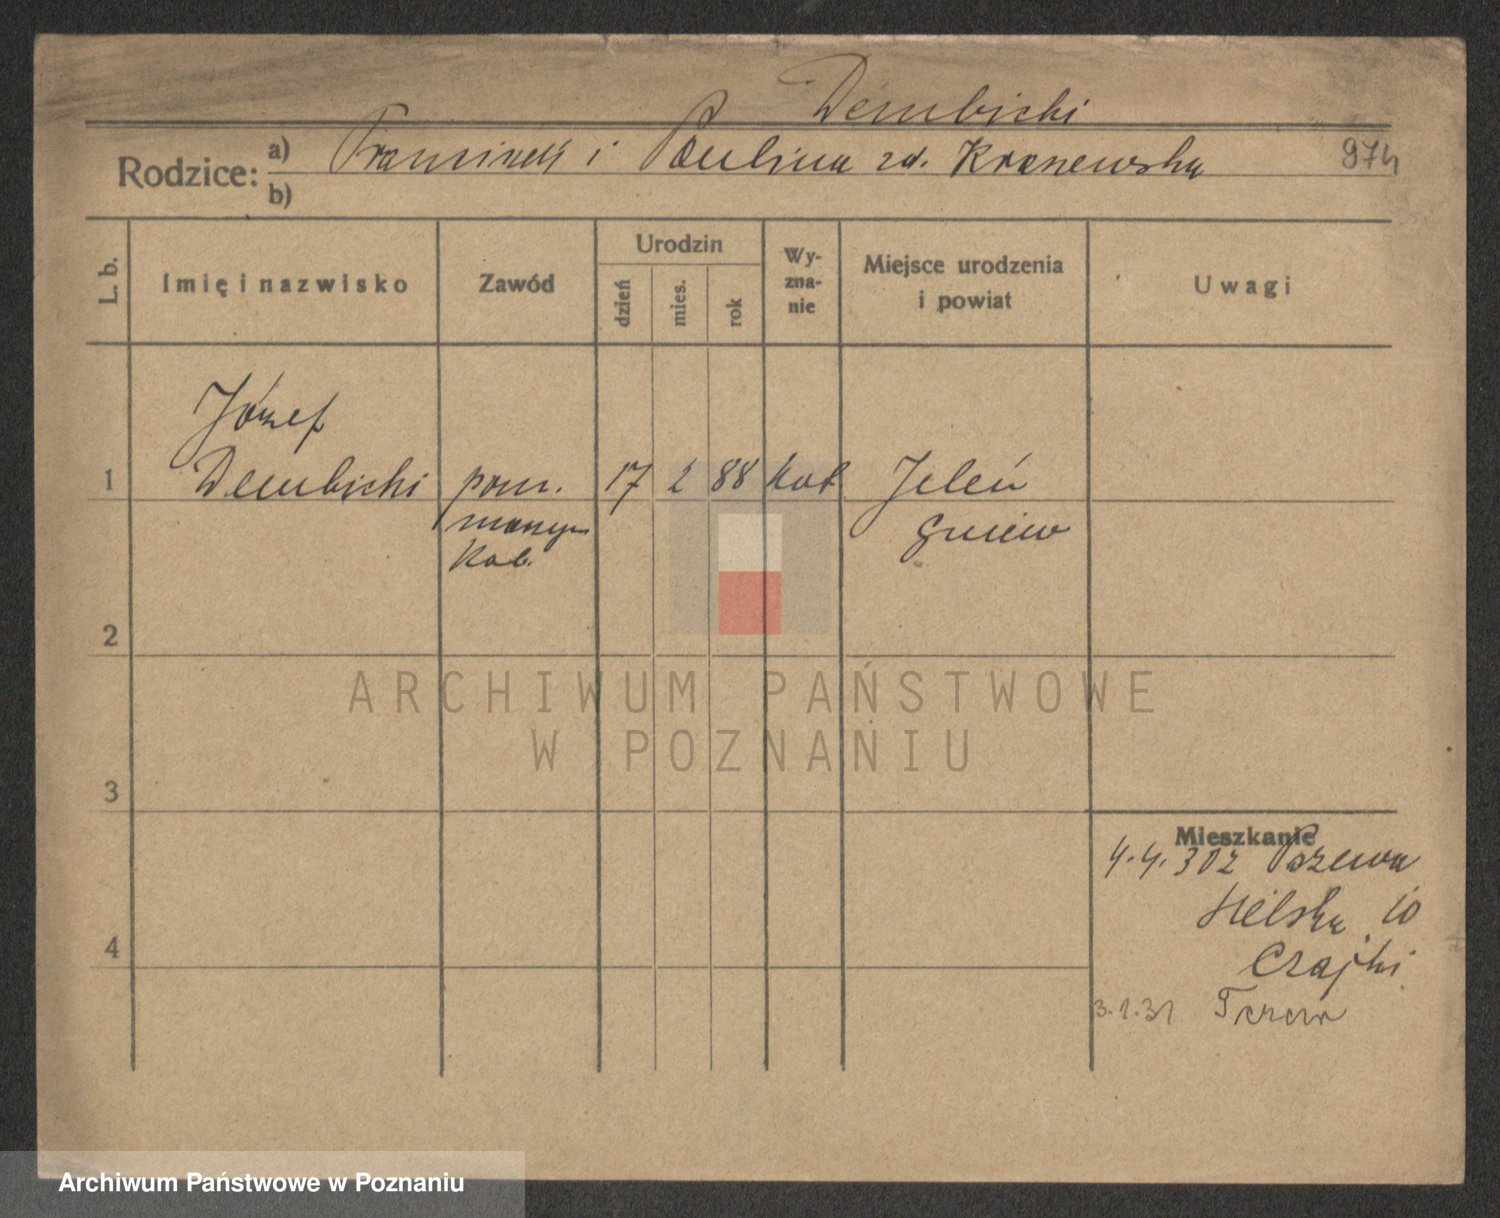 Dembicki
Rodzice: a) Franciszek i Paulina zd. Kranewska 974
b)
L. b. Imię i nazwisko Zawód Urodzin dzień mies. rok Wy-zna-nie Miejsce urodzenia i powiat Uwagi
Józef
1 Dembicki pom. 17 2 88 kat Jeleń
maszyn Gniew
kol.
2
ARCHIWUM PAŃSTWOWE
W POZNANIU
3
Mieszkanie
4.4.30 z Tczewa
Helska 10
4 Czajki
3.1.31 Tczew
Archiwum Państwowe w Poznaniu